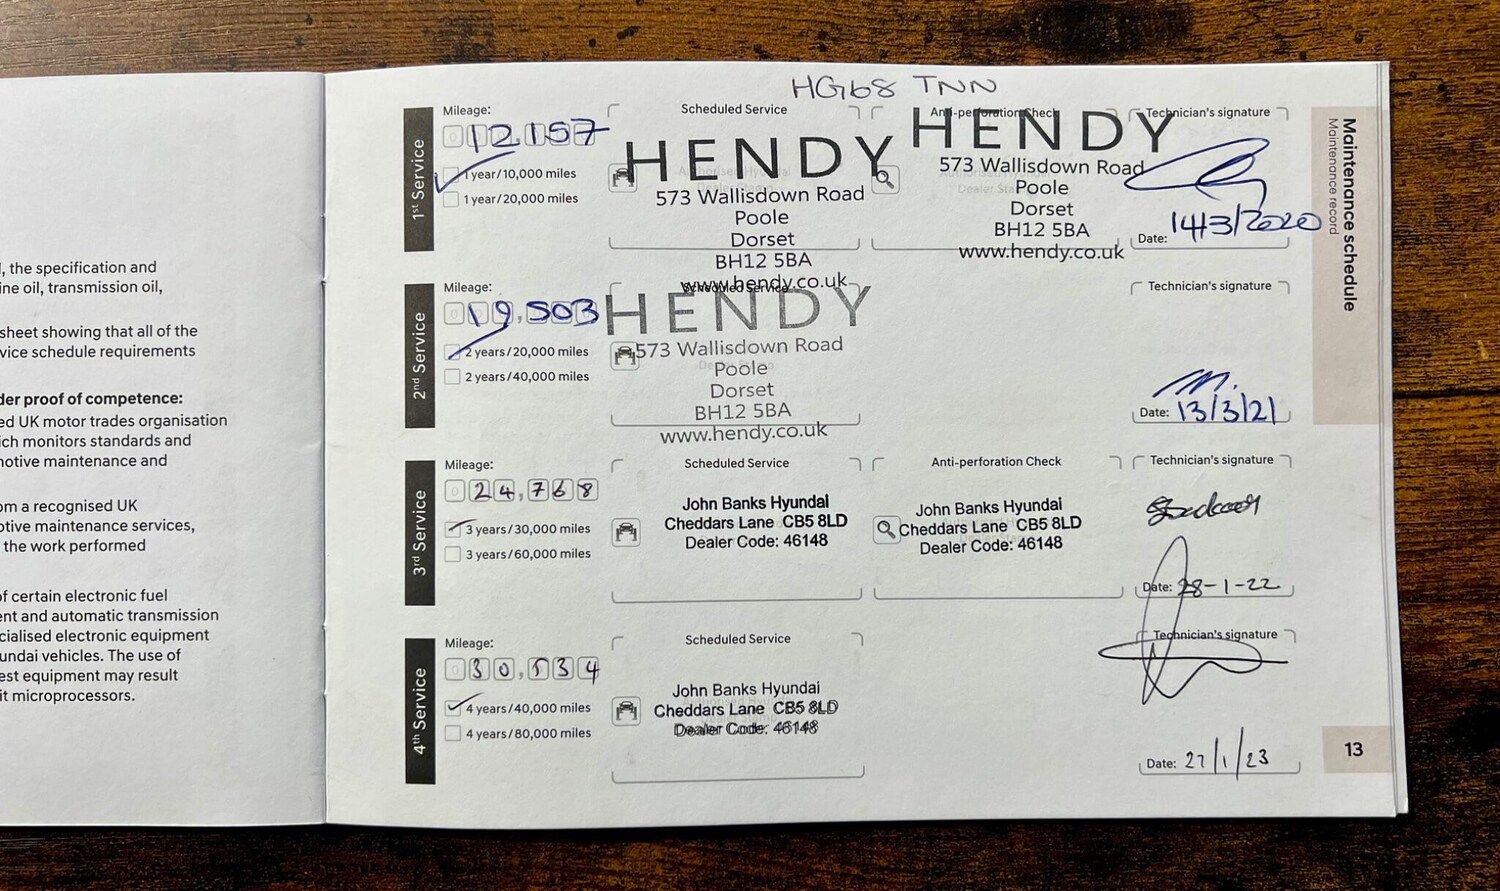 , the specification and
ine oil, transmission oil,
sheet showing that all of the
vice schedule requirements
der proof of competence:
ed UK motor trades organisation
ich monitors standards and
motive maintenance and
om a recognised UK
otive maintenance services,
the work performed
of certain electronic fuel
ent and automatic transmission
cialised electronic equipment
undai vehicles. The use of
est equipment may result
it microprocessors.
HG68 TNN
1st Service
Mileage:
12157
1 year/10,000 miles
1 year/20,000 miles
Scheduled Service
HENDY
573 Wallisdown Road
Poole
Dorset
BH12 5BA
www.hendy.co.uk
Anti-perforation Check
HENDY
573 Wallisdown Road
Poole
Dorset
BH12 5BA
www.hendy.co.uk
Technician's signature
Date: 14/3/2020
2nd Service
Mileage:
19,503
2 years/20,000 miles
2 years/40,000 miles
Scheduled Service
HENDY
573 Wallisdown Road
Poole
Dorset
BH12 5BA
www.hendy.co.uk
Technician's signature
Date: 13/3/21
3rd Service
Mileage:
24,768
3 years/30,000 miles
3 years/60,000 miles
Scheduled Service
John Banks Hyundai
Cheddars Lane CB5 8LD
Dealer Code: 46148
Anti-perforation Check
John Banks Hyundai
Cheddars Lane CB5 8LD
Dealer Code: 46148
Technician's signature
Date: 28-1-22
4th Service
Mileage:
30,534
4 years/40,000 miles
4 years/80,000 miles
Scheduled Service
John Banks Hyundai
Cheddars Lane CB5 8LD
Dealer Code: 46148
Technician's signature
Date: 27/1/23
Maintenance schedule
Maintenance record
13